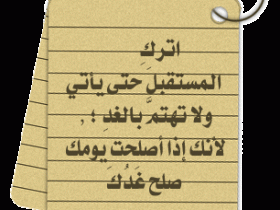 اتركِ
المستقبل حتى يأتي
ولا تهتمَّ بالغدِ ؛ ,
لأنك إذا أصلحت يومك
صلح غَدُكَ